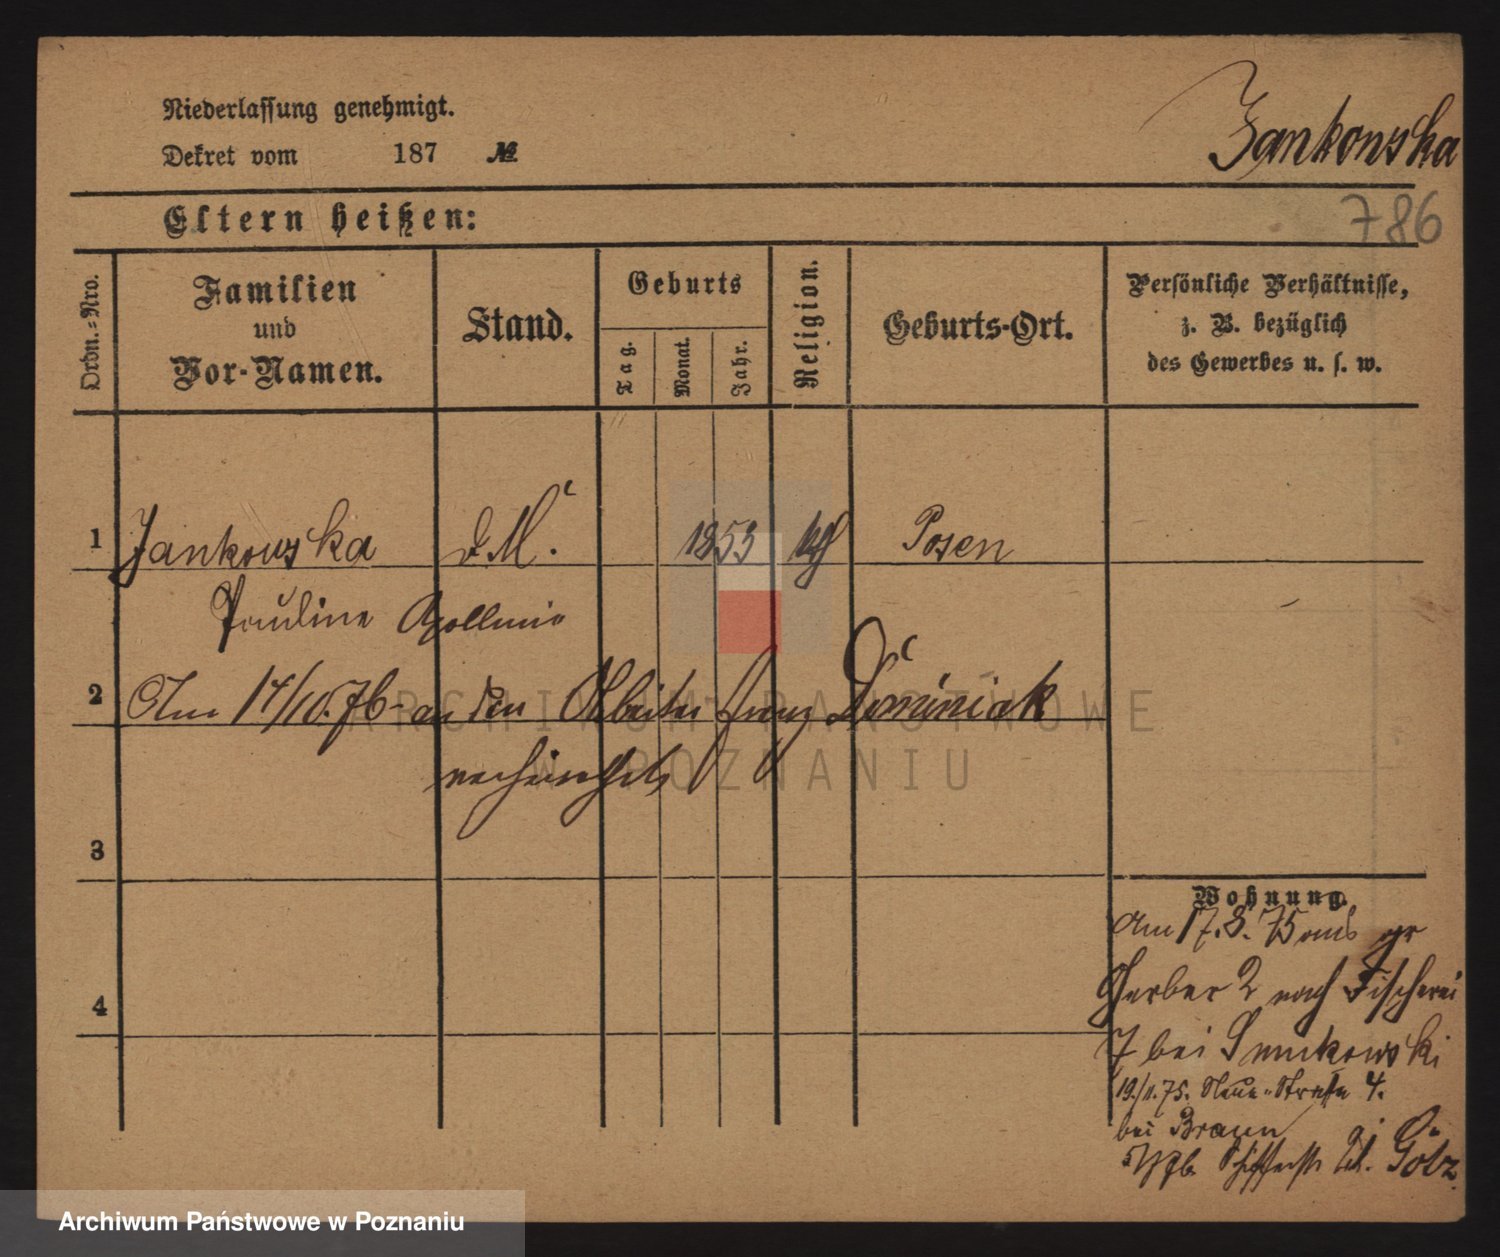 Niederlassung genehmigt.
Dekret vom 187 №
Jankowska
Eltern heißen:
786
Ordn.=Nro.
Familien
und
Vor-Namen.
Stand.
Geburts
Tag.
Monat.
Jahr.
Religion.
Geburts-Ort.
Persönliche Verhältnisse,
z. B. bezüglich
des Gewerbes u. s. w.
1 Jankowska d. M. 1853 kth Posen
Pauline Apollonia
2 Am 17/10.76 an den Arbeiter Franz Dominiak
verheirathet
3
4
Wohnung.
Am 17.8.75 aus gr
Gerber 2 nach Fischerei
7 bei
19./1.75. Neue-Straße 4.
bei Braun
Schifferstr Götz
ARCHIWUM PAŃSTWOWE
W POZNANIU
Archiwum Państwowe w Poznaniu